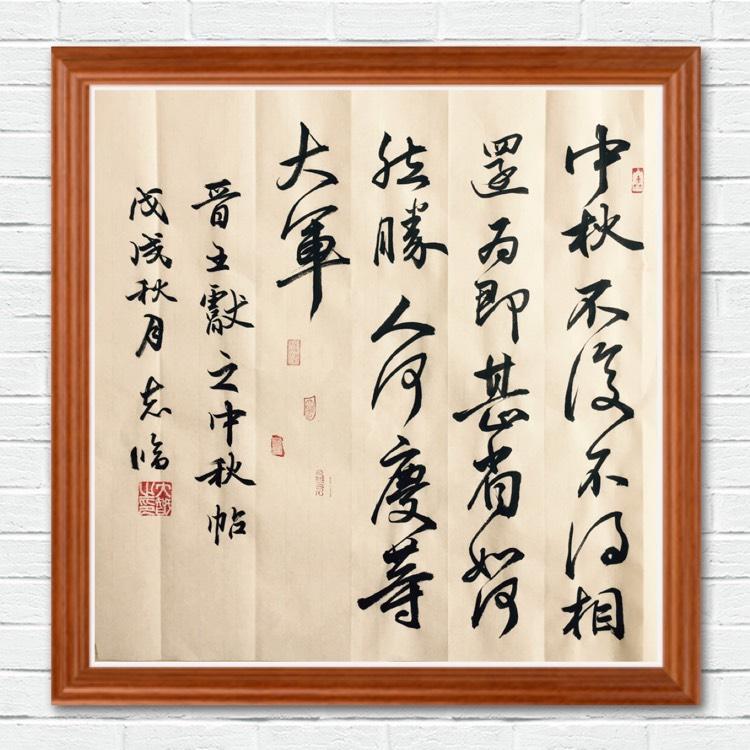 中秋不復不得相
還為即甚省如何
然勝人何慶等
大軍
晋王獻之中秋帖
戊戌秋月志臨